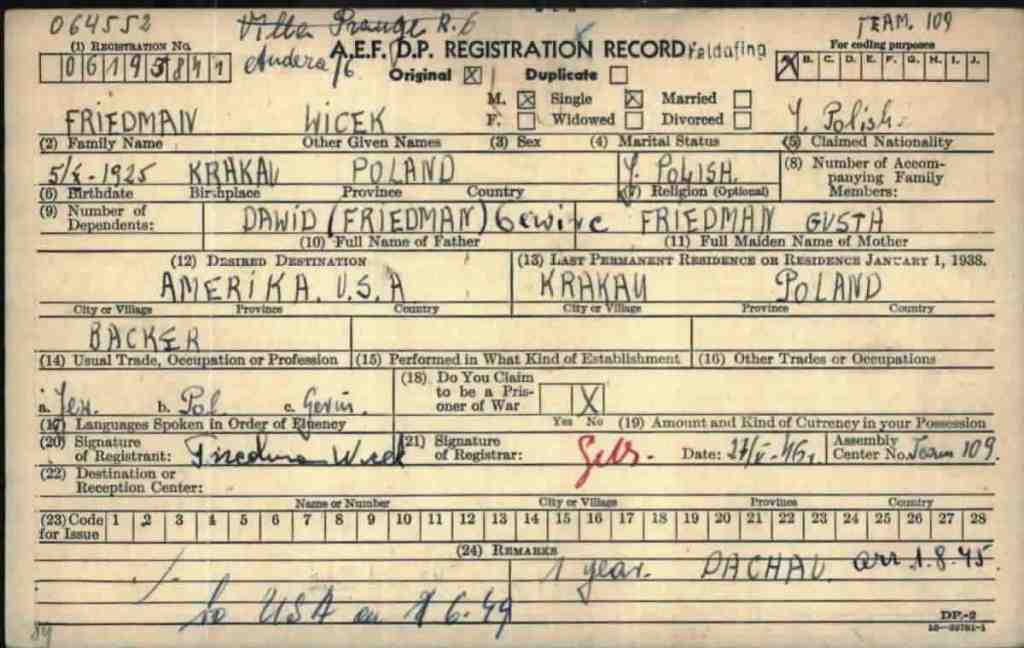 064552 Villa Prange R.6 TEAM. 109
(1) REGISTRATION NO. A.E.F. D.P. REGISTRATION RECORD Feldafing For coding purposes
06195841 Original ☒ Duplicate ☐ A. B. C. D. E. F. G. H. I. J.
M. ☒ Single ☒ Married ☐
FRIEDMAN WICEK F. ☐ Widowed ☐ Divorced ☐ Y. Polish
(2) Family Name Other Given Names (3) Sex (4) Marital Status (5) Claimed Nationality
5/X-1925 KRAKAU POLAND Y. POLISH. (8) Number of Accompanying Family Members:
(6) Birthdate Birthplace Province Country (7) Religion (Optional)
(9) Number of Dependents: DAWID (FRIEDMAN) FRIEDMAN GUSTA
(10) Full Name of Father (11) Full Maiden Name of Mother
(12) DESIRED DESTINATION (13) LAST PERMANENT RESIDENCE OR RESIDENCE JANUARY 1, 1938.
AMERIKA. U.S.A KRAKAU POLAND
City or Village Province Country City or Village Province Country
BACKER
(14) Usual Trade, Occupation or Profession (15) Performed in What Kind of Establishment (16) Other Trades or Occupations
a. b. Pol. c. (18) Do You Claim to be a Prisoner of War X
(17) Languages Spoken in Order of Fluency Yes No (19) Amount and Kind of Currency in your Possession
(20) Signature of Registrant: Friedman Wicek (21) Signature of Registrar: Date: Assembly Center No. Team 109.
(22) Destination or Reception Center:
Name or Number City or Village Province Country
(23) Code for Issue 1 2 3 4 5 6 7 8 9 10 11 12 13 14 15 16 17 18 19 20 21 22 23 24 25 26 27 28
(24) REMARKS
1 year. DACHAU. arr. 1.8.45.
to USA on 6.49
DP-2